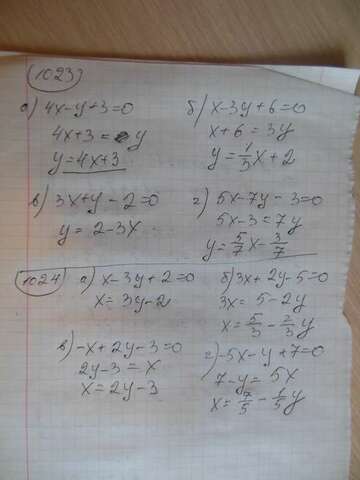 1023
а) 4x-y+3=0
4x+3=y
y=4x+3
б) x-3y+6=0
x+6=3y
y=1/3x+2
в) 3x+y-2=0
y=2-3x
г) 5x-7y-3=0
5x-3=7y
y=5/7x-3/7
1024
а) x-3y+2=0
x=3y-2
б) 3x+2y-5=0
3x=5-2y
x=5/3-2/3y
в) -x+2y-3=0
2y-3=x
x=2y-3
г) -5x-y+7=0
7-y=5x
x=7/5-1/5y